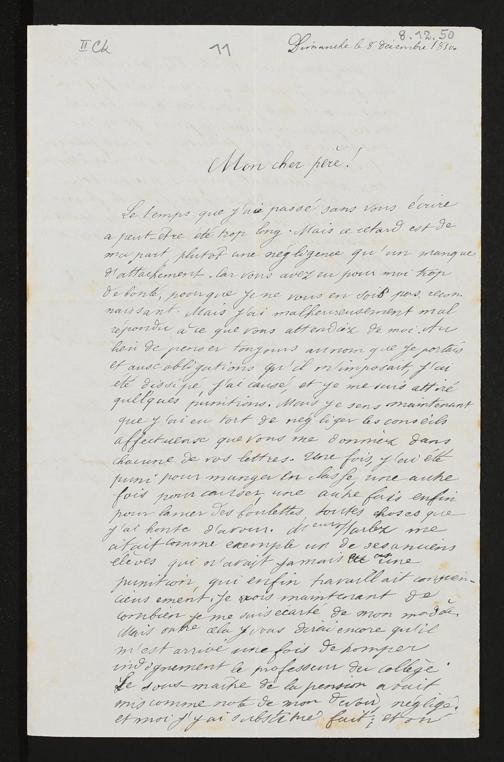 8.12.50
II Ck
11
Dimanche le 8 décembre 1850.
Mon cher père!
Le temps que j'aie passé sans vous écrire
a peut-être été trop long. Mais ce retard est de
ma part, plutôt une négligence qu'un manque
d'attachement. Car vous avez eu pour moi trop
de bonté, pour que je ne vous en sois pas recon-
naissant. Mais j'ai malheureusement mal
répondu à ce que vous attendiez de moi. Au
lieu de penser toujours au nom que je portais
et aux obligations qu'il m'imposait, j'ai
été dissipé, j'ai causé, et je me suis attiré
quelques punitions. Mais je sens maintenant
que j'ai eu tort de négliger les conseils
affectueux que vous me donnez dans
chacune de vos lettres. Une fois, j'ai été
puni pour manger en classe, une autre
fois pour causer, une autre fois enfin
pour lancer des boulettes, toutes choses que
j'ai honte d'avouer. Mr me
citait comme exemple un de ses anciens
élèves qui n'avait jamais une
punition, qui enfin travaillait conscien-
cieusement. Je vois maintenant de
combien je me suis écarté de mon modèle.
Mais outre cela je vous dirai encore qu'il
m'est arrivé une fois de tromper
indignement le professeur du collège.
Le sous maître de la pension avait
mis comme note de mon devoir, négligé.
et moi j'y ai substitué fait; et on